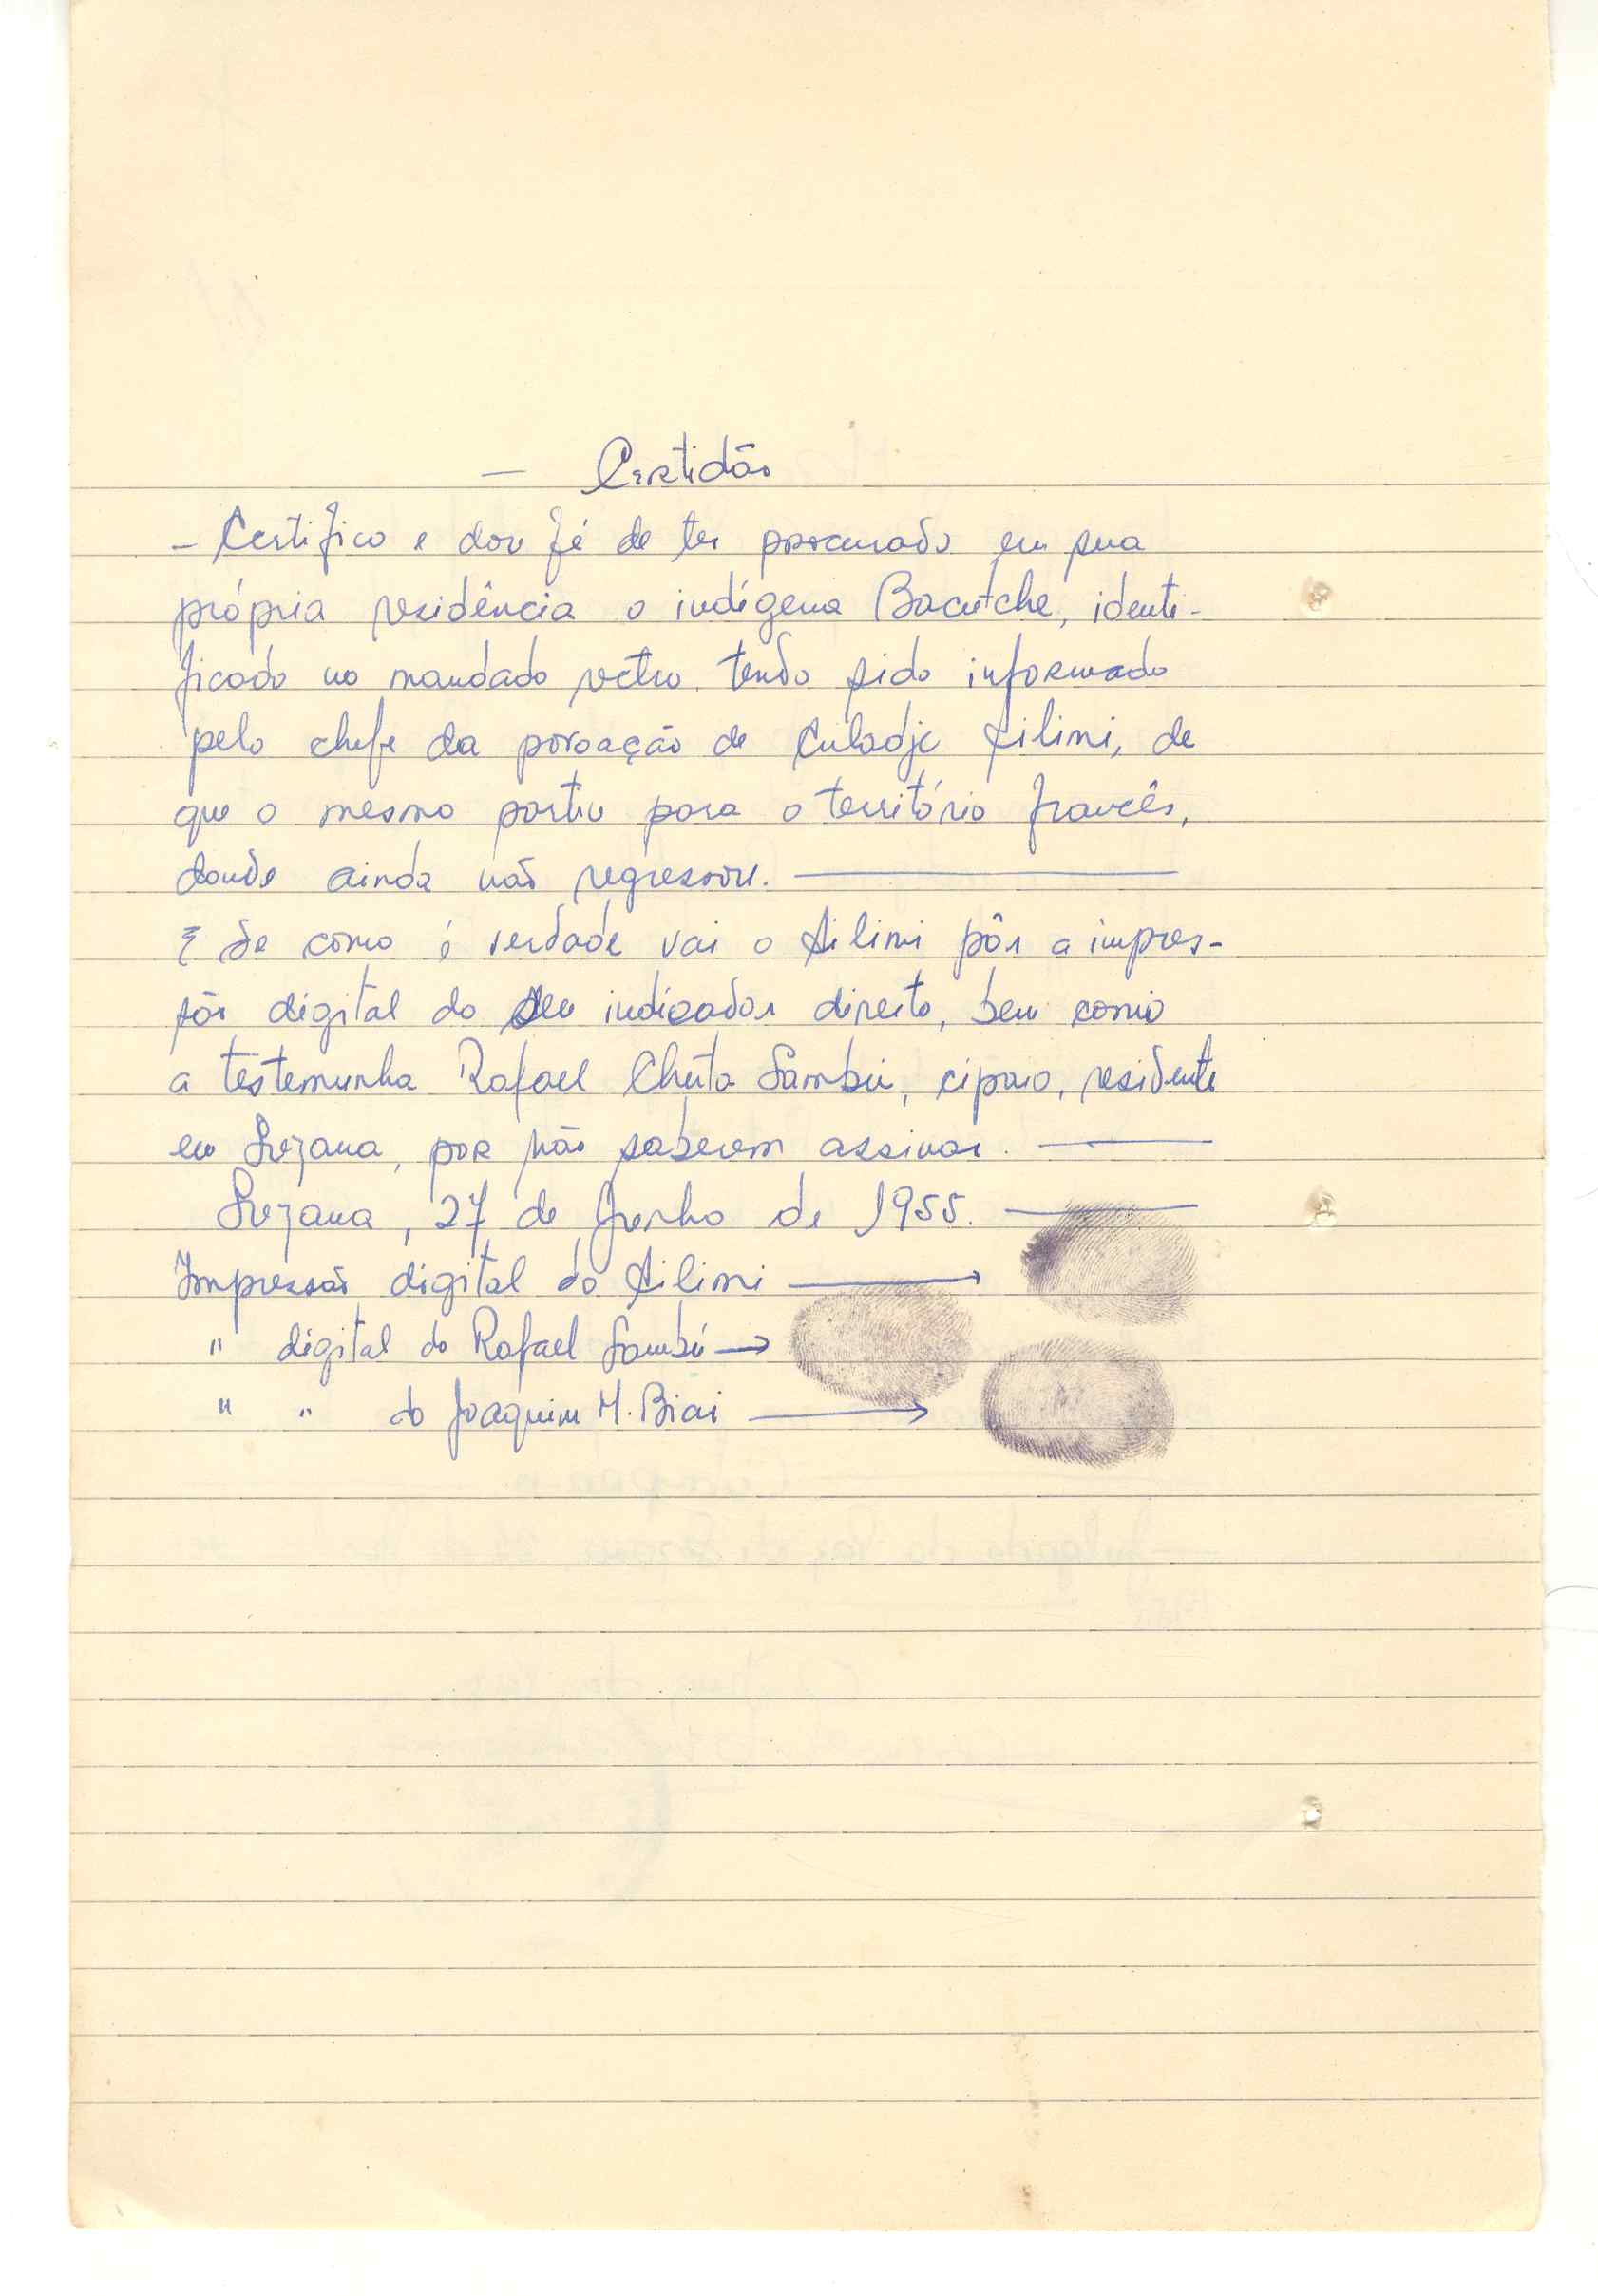 — Certidão
- Certifico e dou fé de ter procurado em sua
própria residência o indígena Bacutche, identi-
ficado no mandado retro tendo sido informado
pelo chefe da povoação de Culadje Ailimi, de
que o mesmo partiu para o território francês,
donde ainda não regressou. ———
E de como é verdade vai o Ailimi pôr a impres-
são digital do seu indicador direito, bem como
a testemunha Rafael Sambú, cipaio, residente
em Suzana, por não saberem assinar. ———
Suzana, 27 de Junho de 1955. ———
Impressão digital do Ailimi →
" digital do Rafael Sambú →
" " do Joaquim M. Biai →